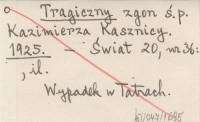 Tragiczny zgon ś.p.
Kazimierza Kasznicy.
1925. – Świat 20, nr 36:
, il.
Wypadek w Tatrach.